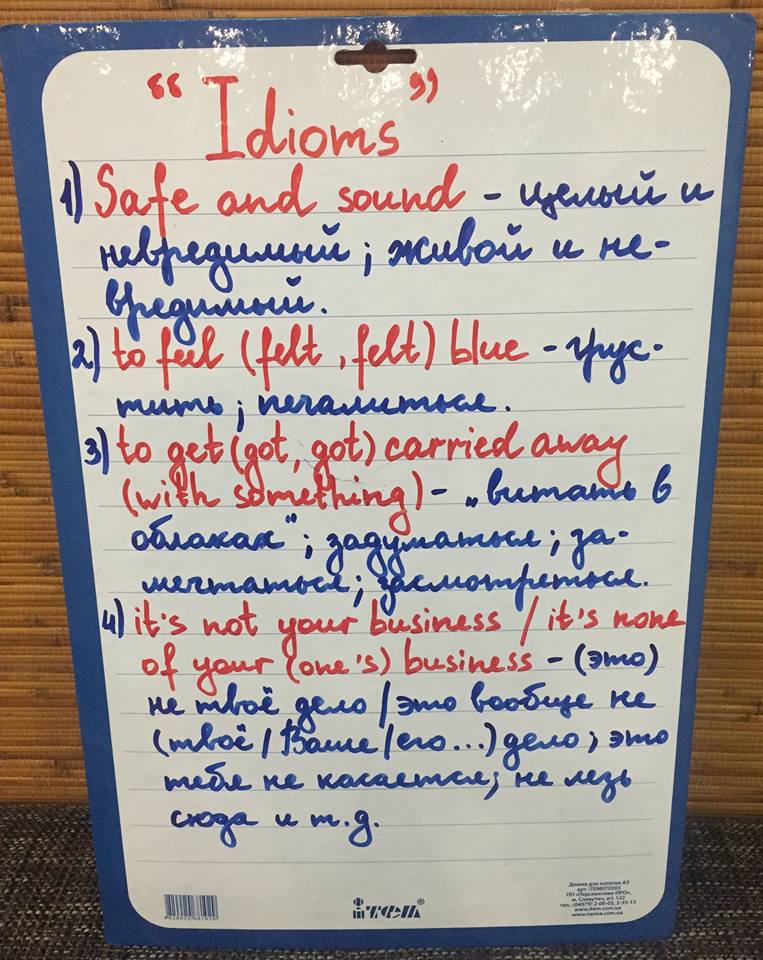 “Idioms”
1) Safe and sound - целый и
невредимый; живой и не-
вредимый.
2) to feel (felt, felt) blue - грус-
тить; печалиться.
3) to get (got, got) carried away
(with something) - „витать в
облаках"; задуматься; за-
мечтаться; засмотреться.
4) it's not your business / it's none
of your (one's) business - (это)
не твоё дело / это вообще не
(твоё / Ваше / его...) дело; это
тебя не касается; не лезь
сюда и т.д.
item®
Дошка для нотаток А3
арт. ITEM070303
ПП «Перспектива-ПРО»,
м. Славутич, а/с 122
тел.: (04579) 2-00-03, 2-35-13
www.item.com.ua